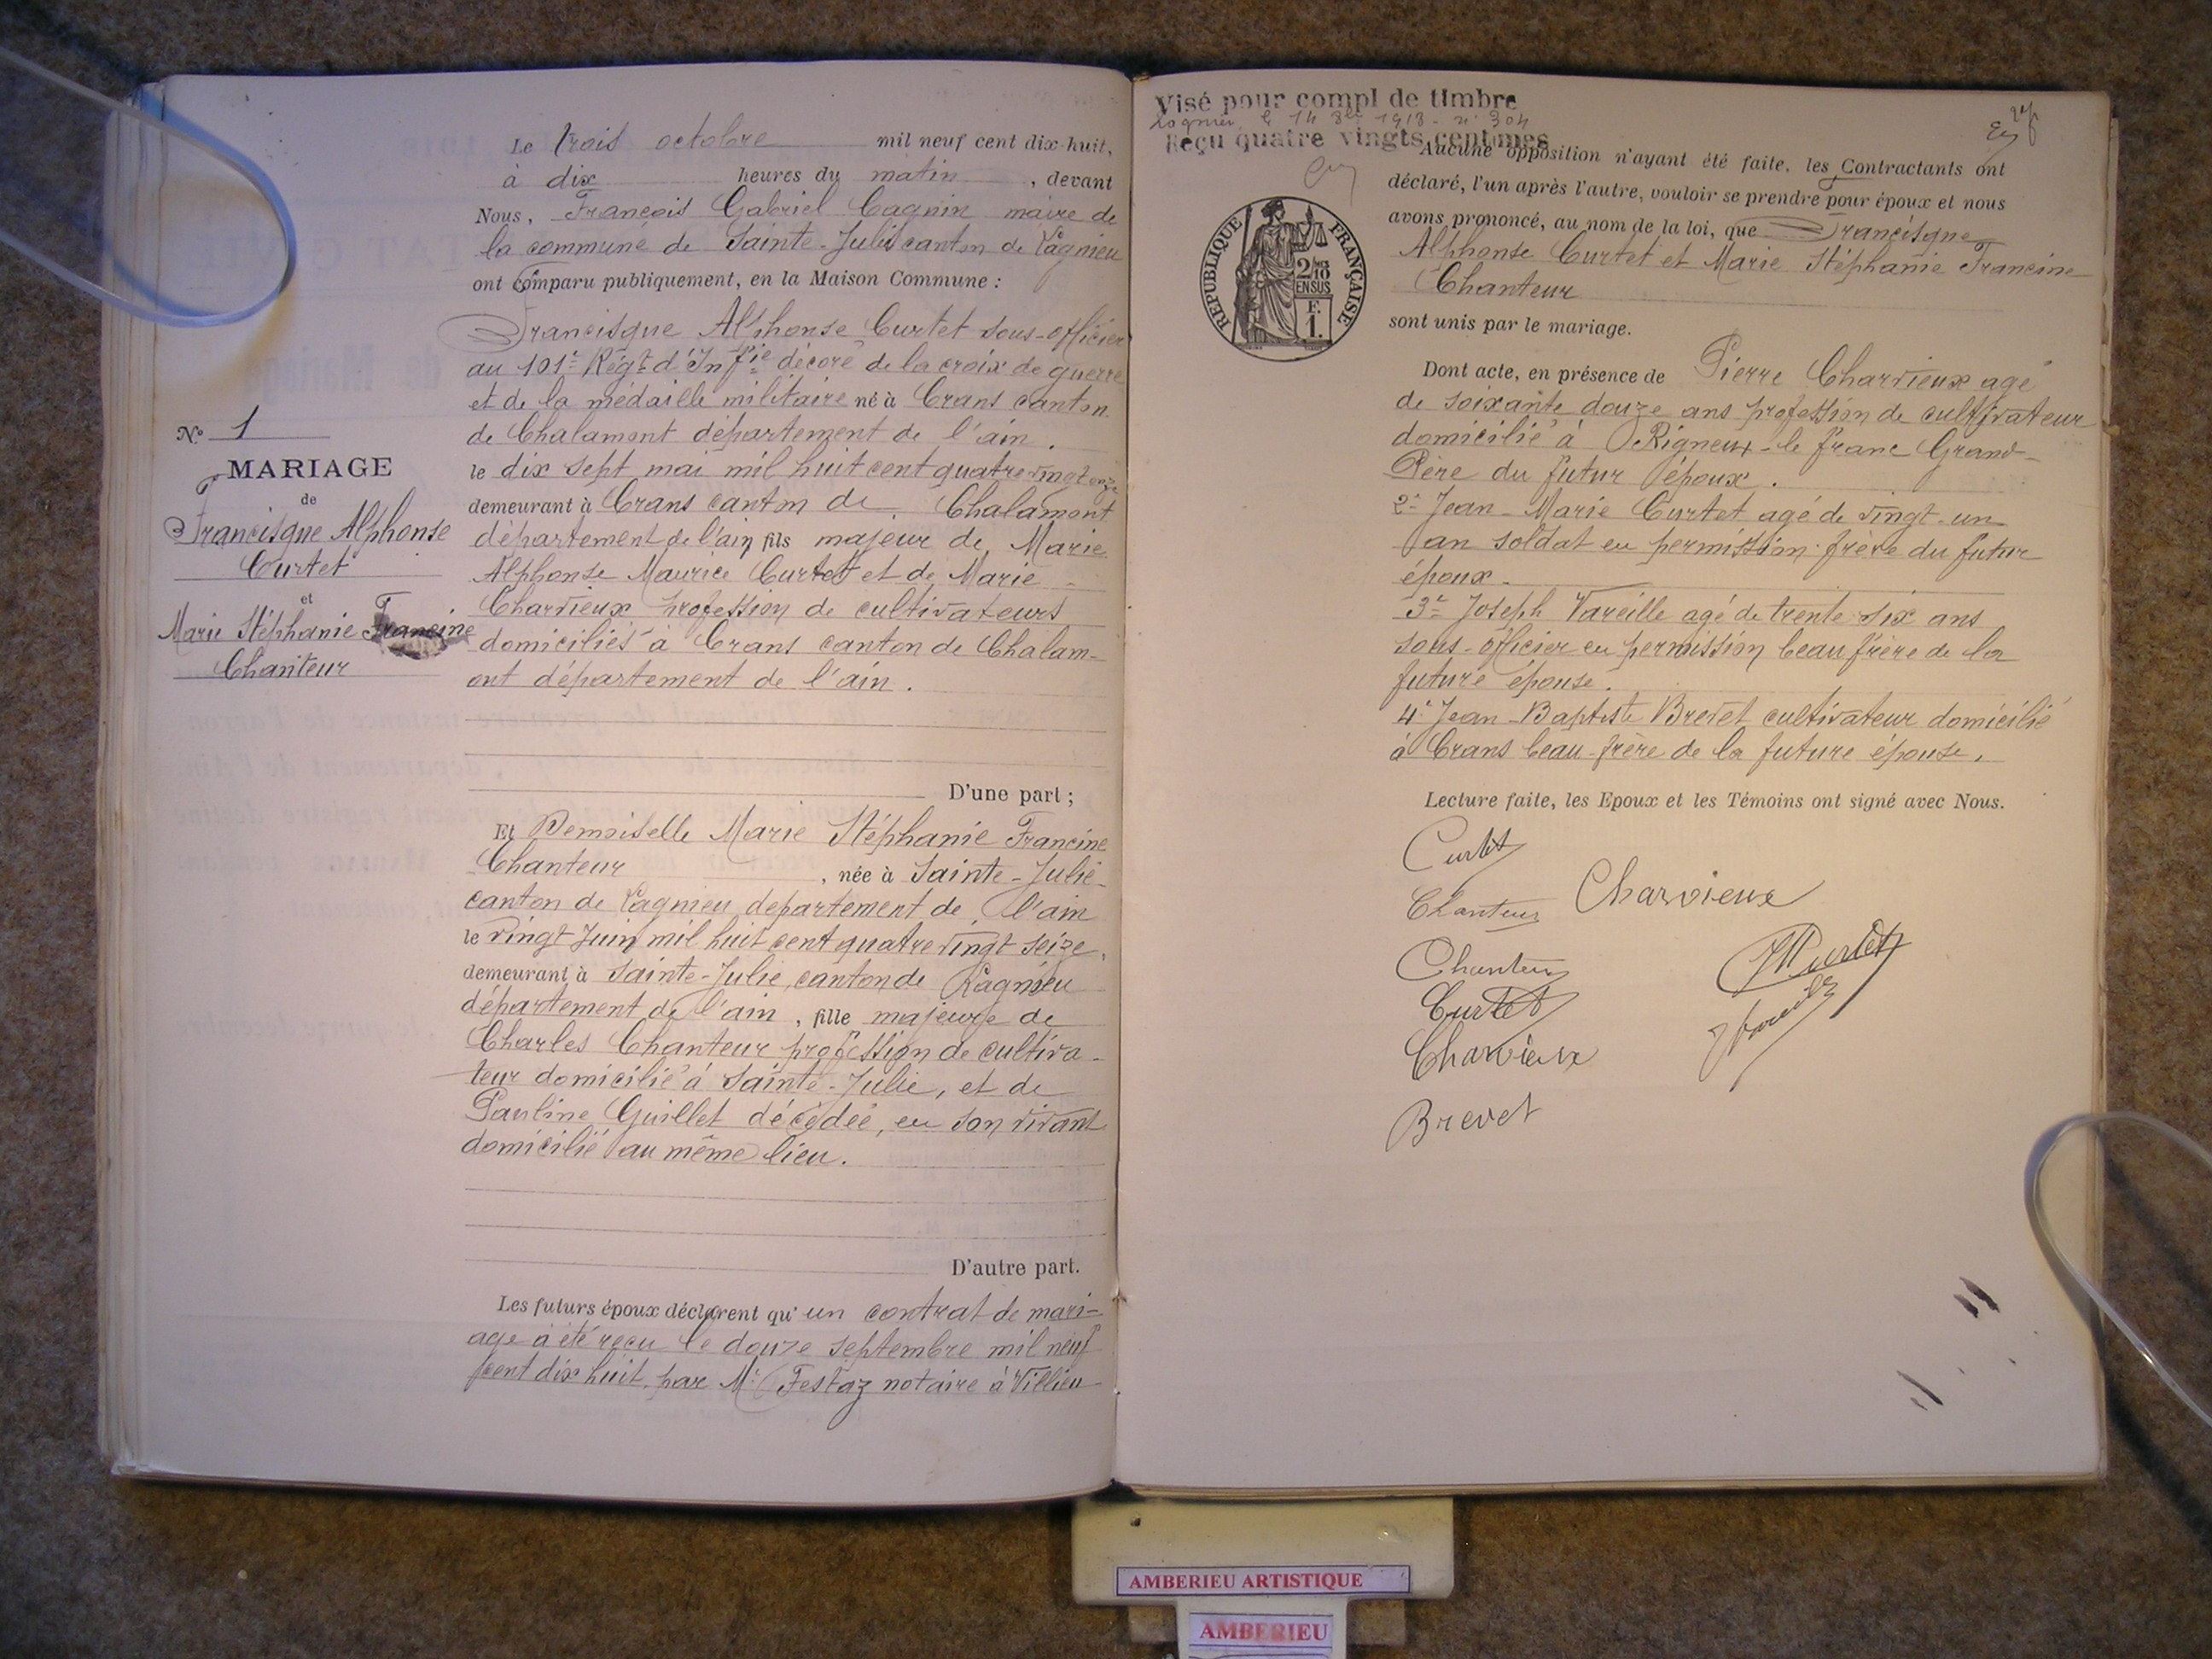 Le trois octobre mil neuf cent dix-huit,
à dix heures du matin, devant
Nous, François Gabriel Cagnin maire de
la commune de Sainte-Julie canton de Lagnieu
ont comparu publiquement, en la Maison Commune :
Francisque Alphonse Curtet sous-officier
au 101e Régt d'Infie décoré de la croix de guerre
et de la médaille militaire né à Crans canton
de Chalamont département de l'ain.
le dix sept mai mil huit cent quatre vingt onze
demeurant à Crans canton de Chalamont
département de l'ain fils majeur de Marie
Alphonse Maurice Curtet et de Marie
Charvieux profession de cultivateurs
domiciliés à Crans canton de Chalam-
ont département de l'ain.
D'une part ;
Et Demoiselle Marie Stéphanie Francine
Chanteur, née à Sainte-Julie
canton de Lagnieu departement de l'ain
le vingt Juin mil huit cent quatre vingt seize,
demeurant à Sainte-Julie, canton de Lagnieu
département de l'ain, fille majeure de
Charles Chanteur profession de cultiva-
teur domicilié à Sainte-Julie, et de
Pauline Guillet décédée, en son vivant
domicilié au même lieu.
D'autre part.
Les futurs époux déclarent qu'un contrat de mari-
age a été reçu le douze septembre mil neuf
cent dix huit, par Me Festaz notaire à Villieu
No 1
MARIAGE
de
Francisque Alphonse
Curtet
et
Marie Stéphanie Francine
Chanteur
Visé pour compl de timbre
Lagnieu, le 14 8bre 1918 - n° 304
Reçu quatre vingts centimes
RÉPUBLIQUE FRANÇAISE
2/10
EN SUS
F.
1.
Aucune opposition n'ayant été faite, les Contractants ont
déclaré, l'un après l'autre, vouloir se prendre pour époux et nous
avons prononcé, au nom de la loi, que Francisque
Alphonse Curtet et Marie Stéphanie Francine
Chanteur
sont unis par le mariage.
Dont acte, en présence de Pierre Charvieux agé
de soixante douze ans profession de cultivateur
domicilié à Rigneux-le franc Grand-
Père du futur époux.
2e Jean-Marie Curtet agé de vingt-un
an soldat en permission frère du futur
époux.
3e Joseph Vareille agé de trente six ans
sous-officier en permission beau frère de la
future épouse.
4e Jean-Baptiste Brevet cultivateur domicilié
à Crans beau-frère de la future épouse.
Lecture faite, les Epoux et les Témoins ont signé avec Nous.
Curtet
Chanteur Charvieux
Chanteur JMCurtet
Curtet
Charvieux
Brevet
AMBERIEU ARTISTIQUE
AMBERIEU